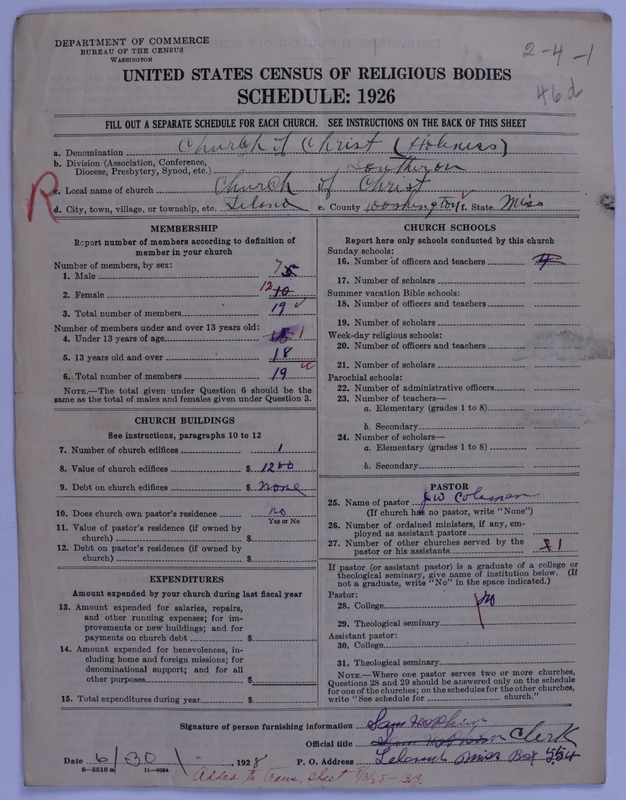 DEPARTMENT OF COMMERCE
BUREAU OF THE CENSUS
WASHINGTON
2-4-1
46d
UNITED STATES CENSUS OF RELIGIOUS BODIES
SCHEDULE: 1926
FILL OUT A SEPARATE SCHEDULE FOR EACH CHURCH. SEE INSTRUCTIONS ON THE BACK OF THIS SHEET
a. Denomination Church of Christ (Holiness)
b. Division (Association, Conference,
Diocese, Presbytery, Synod, etc.) Southern
R c. Local name of church Church of Christ
d. City, town, village, or township, etc. Leland e. County Washington f. State Miss
MEMBERSHIP
Report number of members according to definition of
member in your church
Number of members, by sex:
1. Male 7
2. Female 12 10
3. Total number of members 19
Number of members under and over 13 years old:
4. Under 13 years of age 1
5. 13 years old and over 18
6. Total number of members 19
NOTE.—The total given under Question 6 should be the
same as the total of males and females given under Question 3.
CHURCH BUILDINGS
See instructions, paragraphs 10 to 12
7. Number of church edifices 1
8. Value of church edifices $ 1200
9. Debt on church edifices $ none
10. Does church own pastor's residence? no
Yes or No
11. Value of pastor's residence (if owned by
church) $
12. Debt on pastor's residence (if owned by
church) $
EXPENDITURES
Amount expended by your church during last fiscal year
13. Amount expended for salaries, repairs,
and other running expenses; for im-
provements or new buildings; and for
payments on church debt $
14. Amount expended for benevolences, in-
cluding home and foreign missions; for
denominational support; and for all
other purposes $
15. Total expenditures during year $
CHURCH SCHOOLS
Report here only schools conducted by this church
Sunday schools:
16. Number of officers and teachers 4
17. Number of scholars
Summer vacation Bible schools:
18. Number of officers and teachers
19. Number of scholars
Week-day religious schools:
20. Number of officers and teachers
21. Number of scholars
Parochial schools:
22. Number of administrative officers
23. Number of teachers—
a. Elementary (grades 1 to 8)
b. Secondary
24. Number of scholars—
a. Elementary (grades 1 to 8)
b. Secondary
PASTOR
25. Name of pastor J W Coleman
(If church has no pastor, write "None")
26. Number of ordained ministers, if any, em-
ployed as assistant pastors
27. Number of other churches served by the
pastor or his assistants 1
If pastor (or assistant pastor) is a graduate of a college or
theological seminary, give name of institution below. (If
not a graduate, write "No" in the space indicated.)
Pastor:
28. College no
29. Theological seminary
Assistant pastor:
30. College
31. Theological seminary
NOTE.—Where one pastor serves two or more churches,
Questions 28 and 29 should be answered only on the schedule
for one of the churches; on the schedules for the other churches,
write "See schedule for church."
Signature of person furnishing information Sam Hopkins
Official title Sam Hopkins Clerk
Date 6/30, 1928 P. O. Address Leland Miss Box 554
8-5518 a 11-9054
Added to trans. sheet